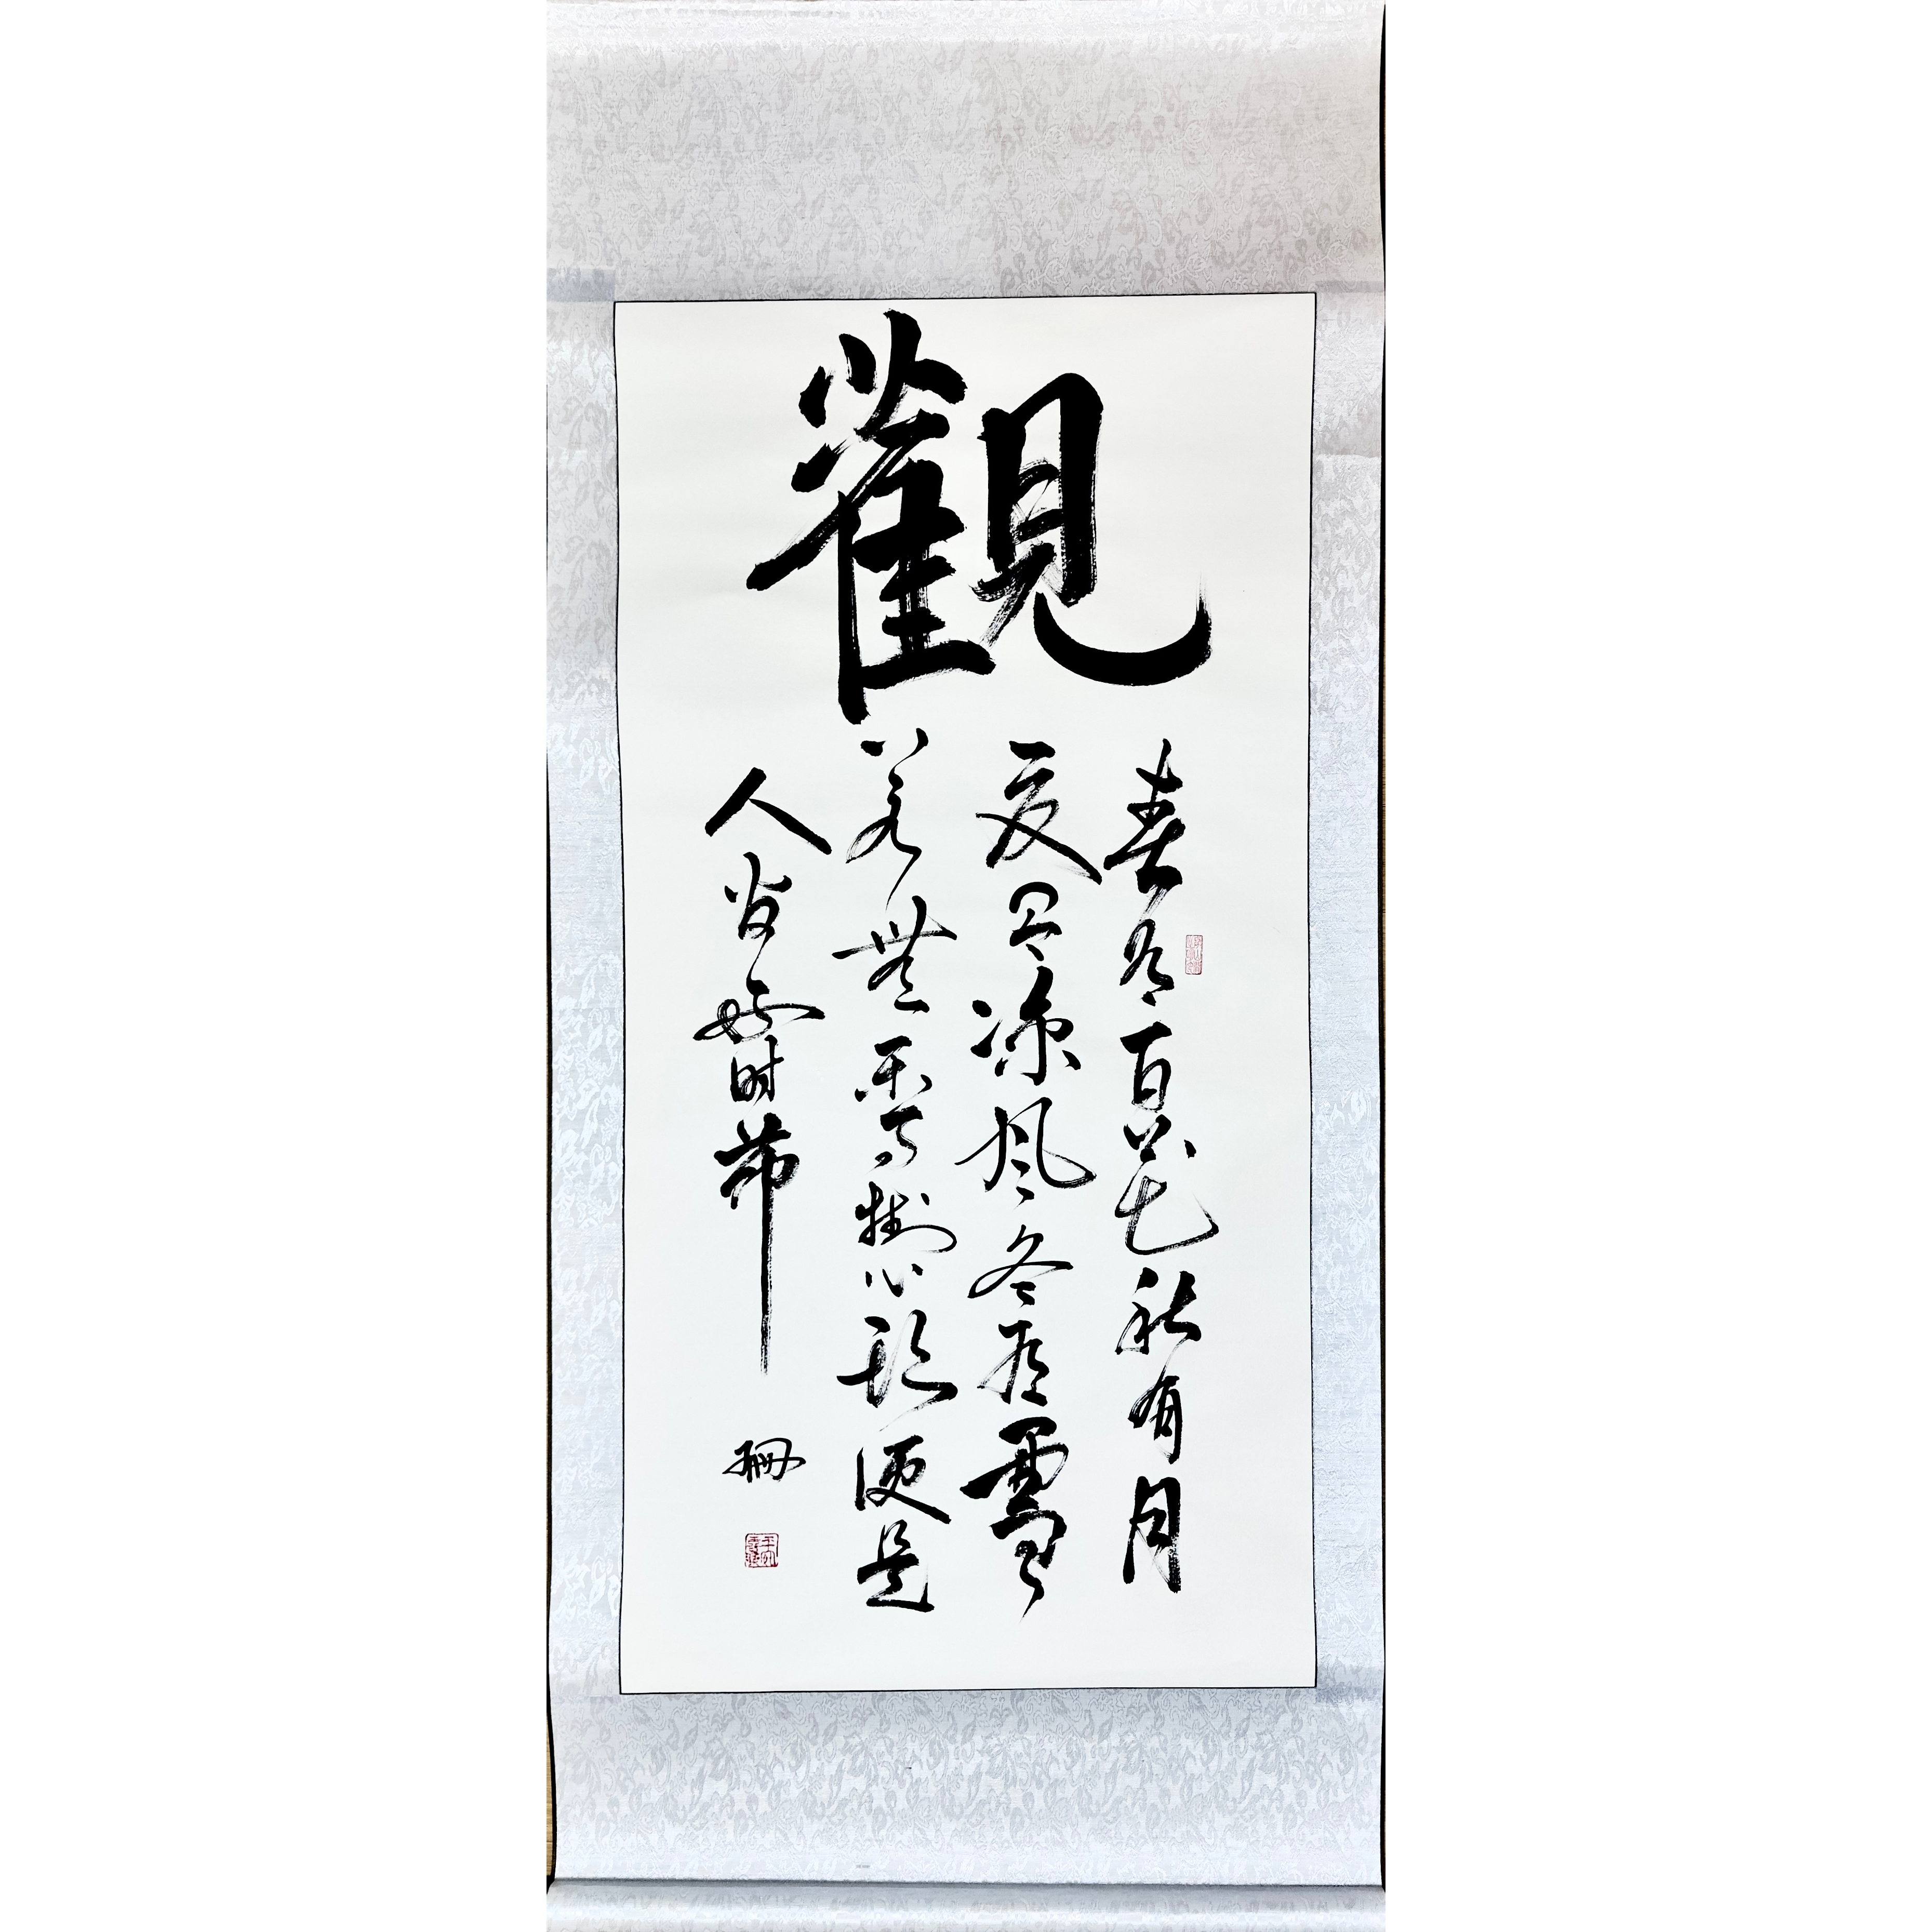 觀
春有百花秋有月
夏有涼風冬有雪
若無閑事掛心頭便是
人間好時節
珊